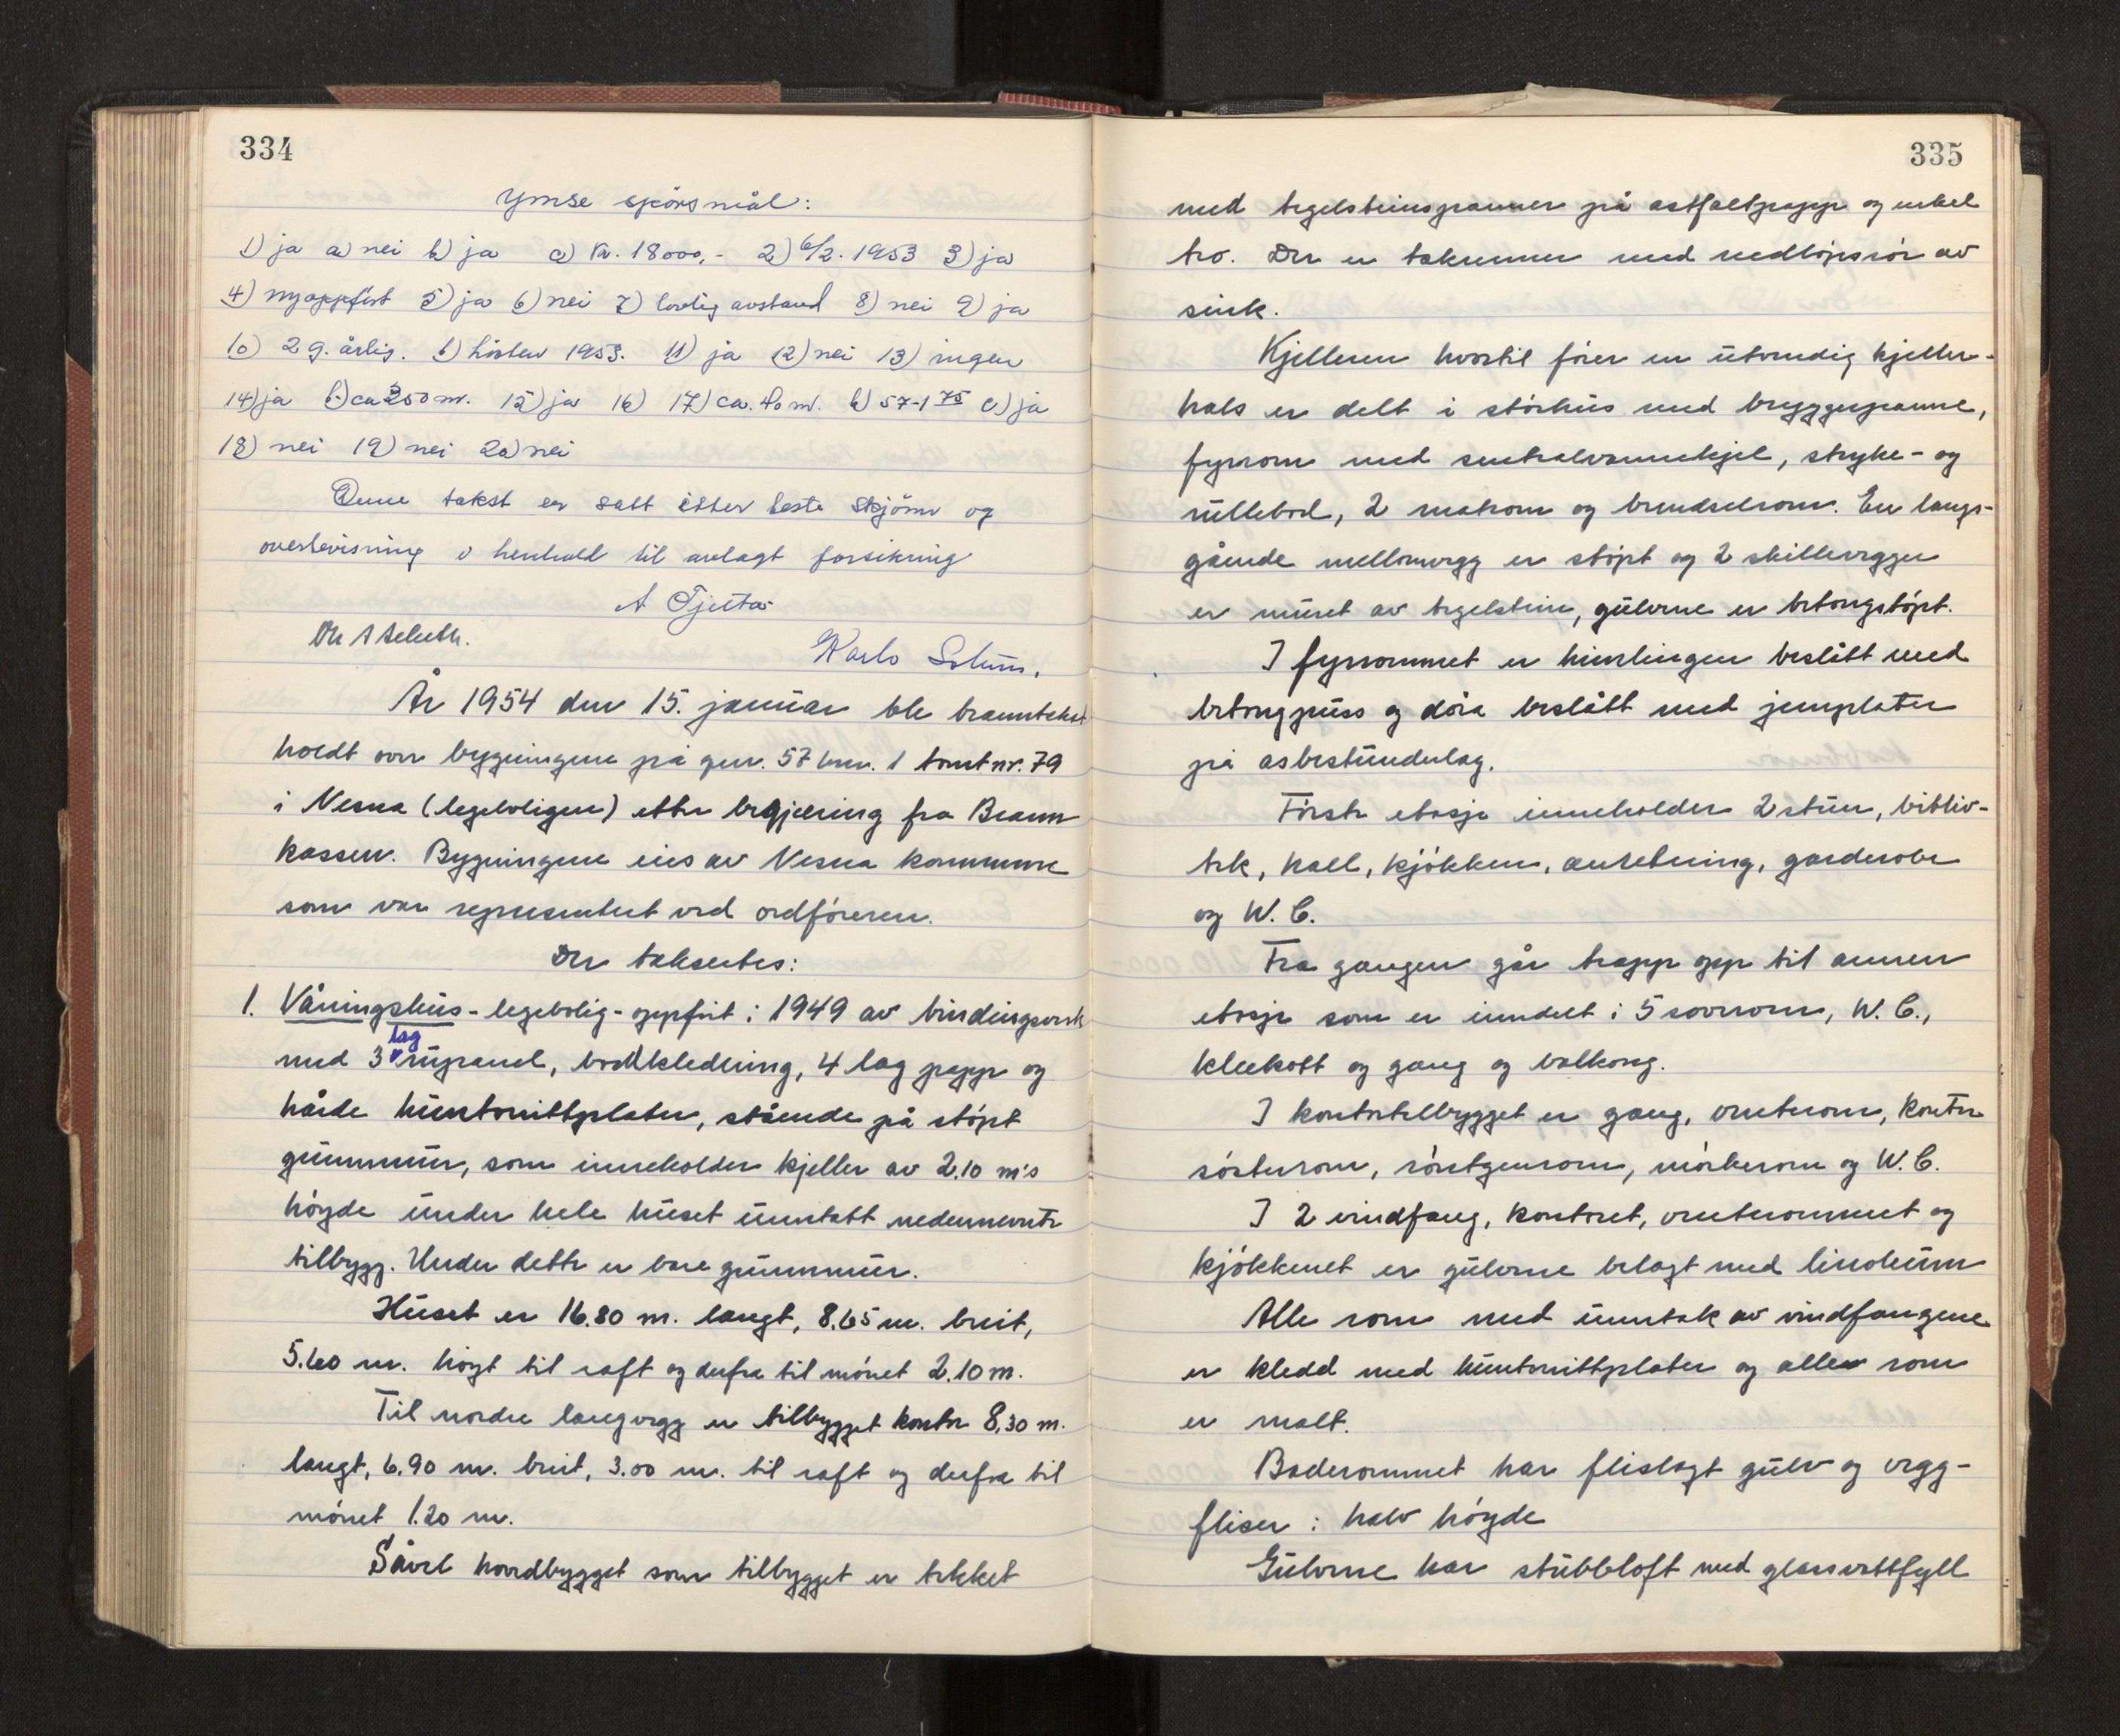 334
Ymse spörsmål:
1) ja a) nei b) ja c) kr. 18000,- 2) 6/2. 1953 3) ja
4) nyoppfört 5) ja 6) nei 7) lovlig avstand 8) nei 9) ja
10) 2 g. årlig. b) hösten 1953. 11) ja 12) nei 13) ingen
14) ja b) ca 250 m. 15) ja 16) 17) ca. 40 m. b) 57-1 75 c) ja
18) nei 19) nei 20) nei
Denne takst er satt etter beste skjönn og
overbevisning i henhold til avlagt forsikring
A Tjetta
Karlo Solum.
År 1954 den 15. januar ble branntakst
holdt over bygningene på gnr. 57 bnr. 1 tomt nr. 79
i Nesna (legeboligen) etter begjæring fra Brann
kassen. Bygningene eies av Nesna kommune
som var representert ved ordföreren.
Der taksertes:
1. Våningshus - legebolig - oppfört i 1949 av bindingsverk
med 3 lag rupanel, bordkledning, 4 lag papp og
hårde huntonittplater, stående på støpt
grunnmur, som inneholder kjeller av 2.10 m's
høyde under hele huset unntatt nedennevnte
tilbygg. Under dette er bare grunnmur.
Huset er 16.80 m. langt, 8.65 m. breit,
5.60 m. høgt til raft og derfra til mønet 2.10 m.
Til nordre langvegg er tilbygget kontor 8,30 m.
langt, 6.90 m. breit, 3.00 m. til raft og derfra til
mønet 1.20 m.
Såvel hovedbygget som tilbygget er tekket
335
med tegelsteinspanner på astfaltpapp og enkel
tro. Der er takrenner med nedløpsrør av
sink.
Kjelleren hvortil fører en utvendig kjeller-
hals er delt i størhus med bryggepanne,
fyrrom med sentralvarmekjel, stryke- og
rullebod, 2 matrom og brendselrom. En langs-
gående mellomvegg er støpt og 2 skillevegger
er muret av tegelstein, gulvene er betongstøpt.
I fyrrommet er himlingen beslått med
betongpuss og døra beslått med jernplater
på asbestunderlag.
Første etasje inneholder 2 stuer, bibliv-
tek, hall, kjøkken, anretning, garderobe
og W. C.
Fra gangen går trapp opp til annen
etasje som er inndelt i 5 soverom, W. C.,
kleskott og gang og balkong.
I kontortilbygget er gang, venterom, kontor
søsterrom, røntgenrom, mørkerom og W. C.
I 2 vindfang, kontoret, venterommet og
kjøkkenet er gulvene belagt med linoleum
Alle rom med unntak av vindfangene
er kledd med huntonittplater og alle rom
er malt.
Baderommet har flislagt gulv og vegg-
fliser i halv høyde
Gulvene har stubbloft med glassvattfyll